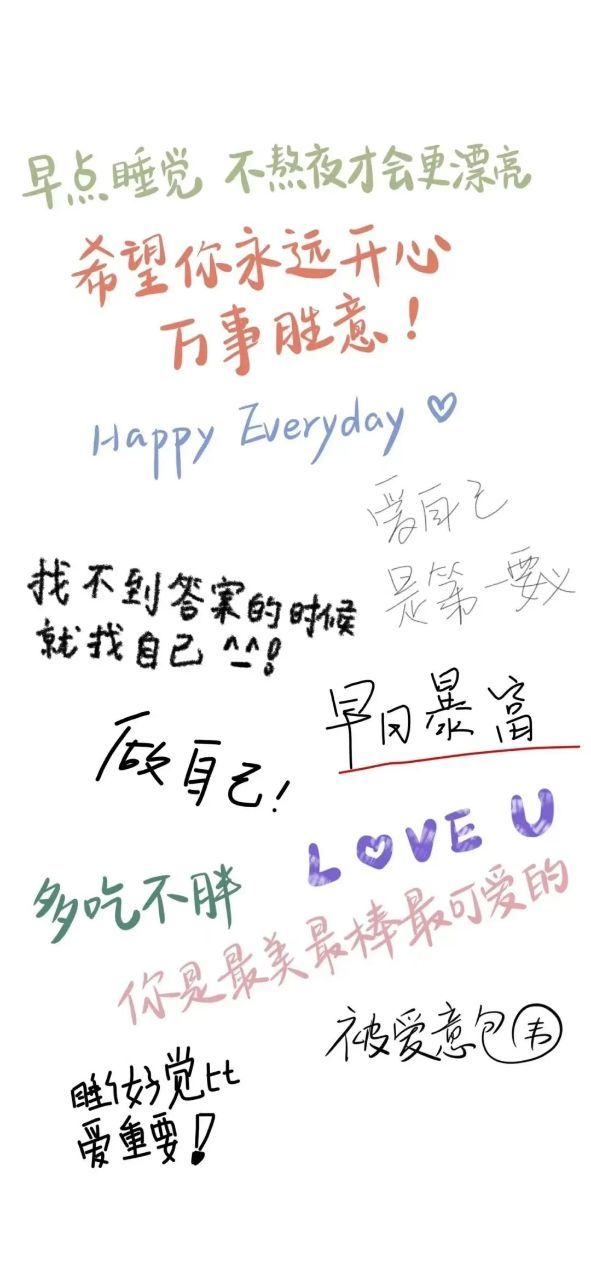 早点睡觉 不熬夜才会更漂亮
希望你永远开心
万事胜意！
Happy Everyday ♡
爱自己
是第一要义
找不到答案的时候
就找自己^_^！
早日暴富
做自己！
LOVE U
多吃不胖
你是最美最棒最可爱的
被爱意包韦
睡好觉比
爱重要！